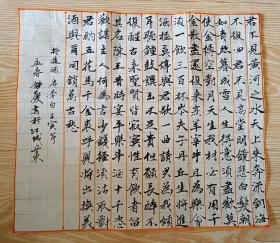 君不見黃河之水天上來奔流到海
不復回君不見高堂明鏡悲白髮朝
如青絲暮成雪人生得意須盡歡莫
使金樽空對月天生我材必有用千
金散盡還復來烹羊宰牛且為樂會
須一飲三百杯岑夫子丹丘生將進
酒杯莫停與君歌一曲請君為我傾
耳聽鐘鼓饌玉不足貴但願長醉不
復醒古來聖賢皆寂寞惟有飲者留
其名陳王昔時宴平樂斗酒十千恣
歡謔主人何為言少錢徑須沽取對
君酌五花馬千金裘呼兒將出換美
酒與爾同銷萬古愁
將進酒 唐 李白 壬寅年
孟春